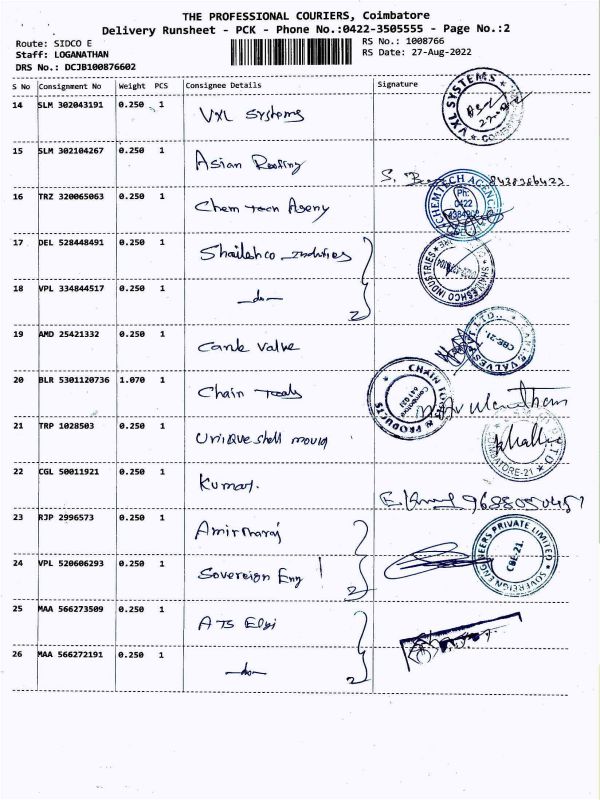 THE PROFESSIONAL COURIERS, Coimbatore
Delivery Runsheet - PCK - Phone No.:0422-3505555 - Page No.:2
Route: SIDCO E
RS No.: 1008766
Staff: LOGANATHAN
RS Date: 27-Aug-2022
DRS No.: DCJB100876602
S No Consignment No Weight PCS Consignee Details Signature
14 SLM 302043191 0.250 1 VXL Systems
VXL SYSTEMS
15 SLM 302104267 0.250 1 Asian Roofing
16 TRZ 320065063 0.250 1 Chem Tech Ageny
CHEMTECH AGENC
Ph:
0422
17 DEL 528448491 0.250 1 Shaileshco Industries
SHAILESHCO INDUSTRIES
18 VPL 334844517 0.250 1 -do- 2
19 AMD 25421332 0.250 1 valve
VALVES
CBE-21.
20 BLR 5301120736 1.070 1 Chain Tools
CHAIN TOOLS & PRODUCTS
Coimbatore
641 021
21 TRP 1028503 0.250 1 Unique shell mould
22 CGL 50011921 0.250 1 Kumar.
23 RJP 2996573 0.250 1
24 VPL 520606293 0.250 1 Sovereign Eng 2
SOVEREIGN ENGINEERS PRIVATE LIMITED
CBE-21.
25 MAA 566273509 0.250 1 ATS Elgi
26 MAA 566272191 0.250 1 -do- 2